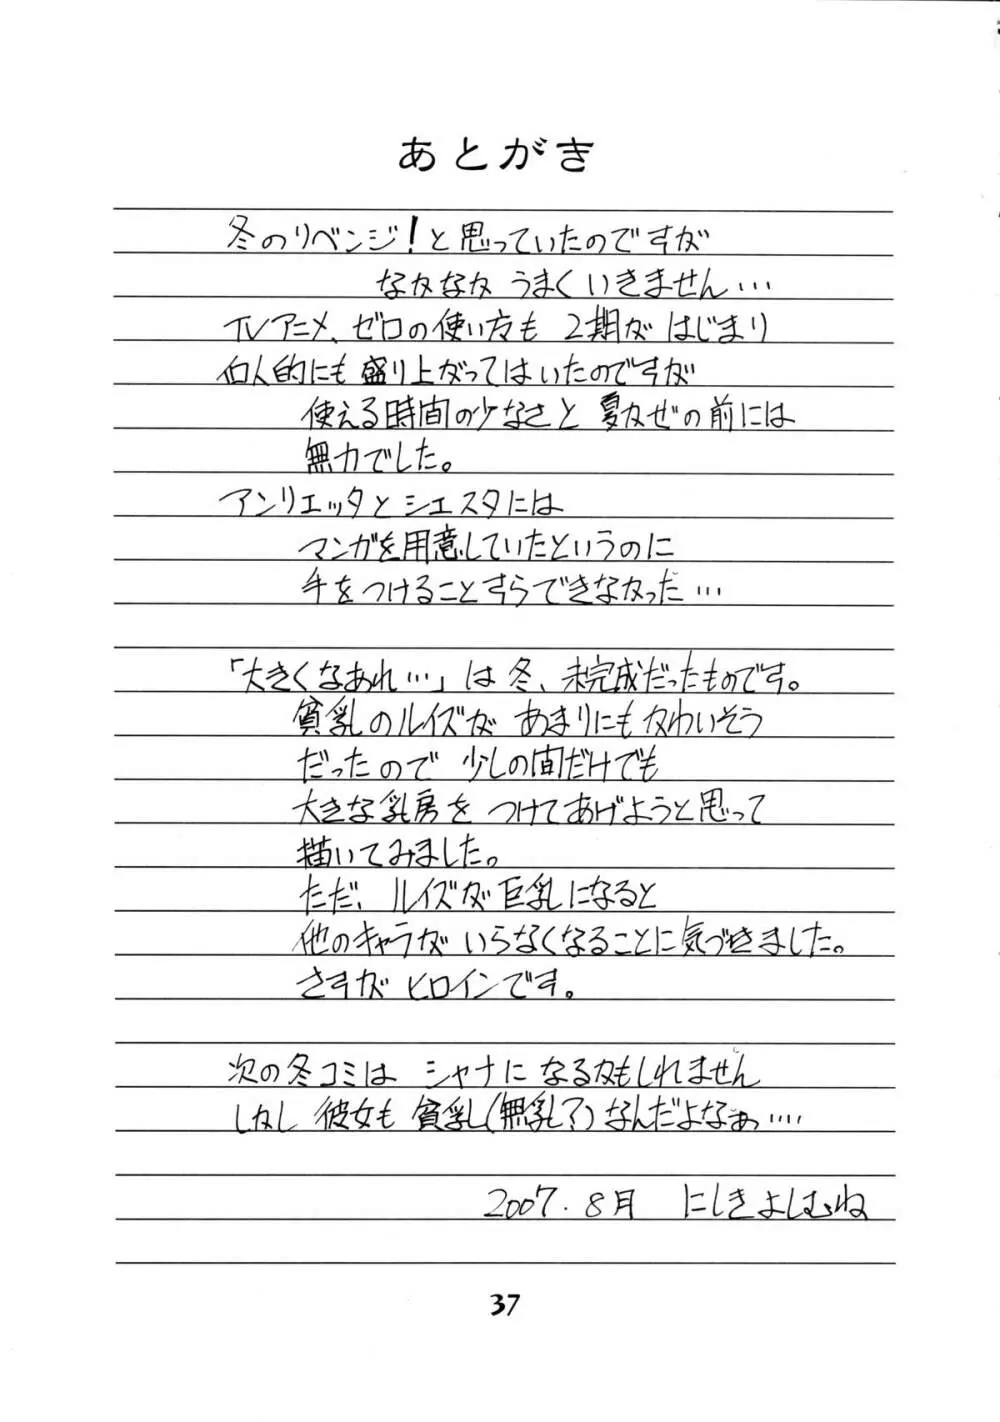 あとがき
冬のリベンジ!と思っていたのですが
なかなか うまくいきません…
TVアニメ、ゼロの使い方も 2期が はじまり
個人的にも 盛り上がってはいたのですが
使える時間の少なさと 夏かぜの前には
無力でした。
アンリエッタとシエスタには
マンガを用意していたというのに
手をつけることすらできなかった…
「大きくなあれ…」は冬、未完成だったものです。
貧乳のルイズが あまりにもかわいそう
だったので 少しの間だけでも
大きな乳房を つけてあげようと思って
描いてみました。
ただ、ルイズが巨乳になると
他のキャラが いらなくなることに気づきました。
さすが ヒロインです。
次の冬コミは シャナに なるかもしれません
しかし 彼女も 貧乳(無乳?)なんだよなぁ……
2007.8月 にしきよしむね
37